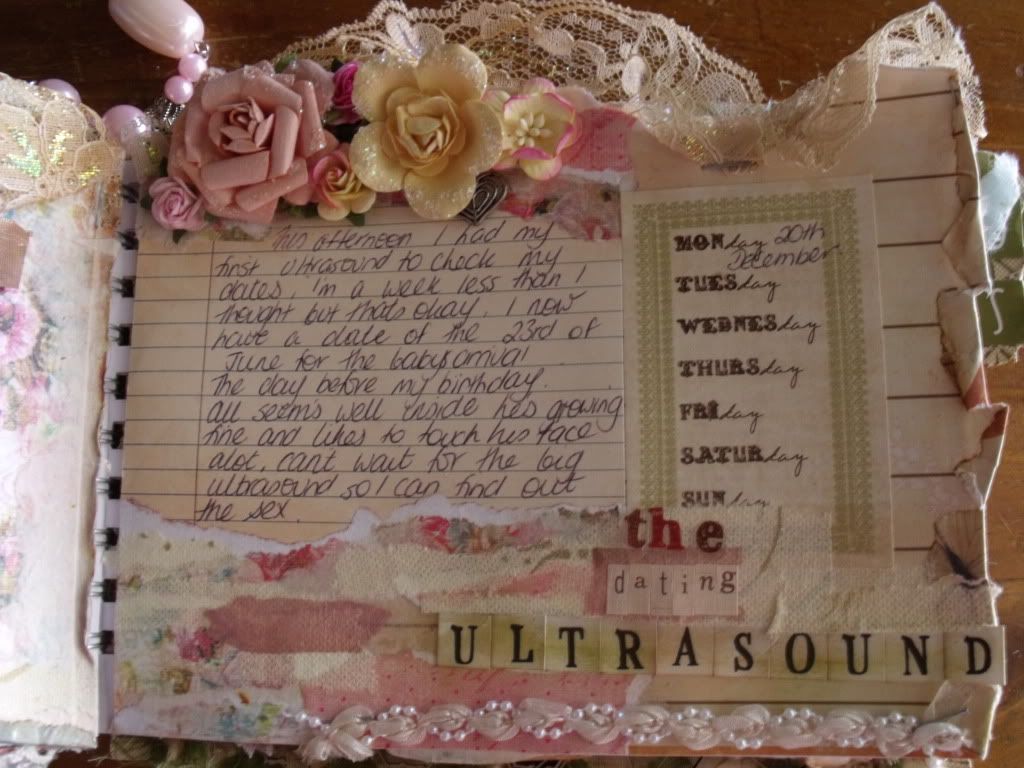 This afternoon I had my
first ultrasound to check my
dates, I'm a week less than I
thought but thats okay. I now
have a date of the 23rd of
June for the babys arrival
The day before my birthday.
all seems well inside hes growing
fine and likes to touch his face
alot, cant wait for the big
ultrasound so I can find out
the sex.
MONday 20th
December.
TUESday
WEDNESday
THURSday
FRIday
SATURday
SUNday
the
dating
ULTRASOUND